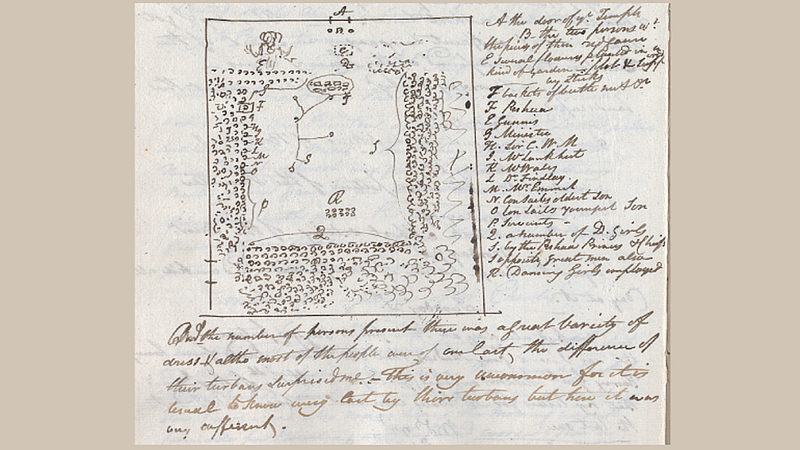 A
A the door of ye Temple
B. the two persons at
the
E Several flowers planted in a
kind of garden
by sticks
F baskets of beetle nut &c
F Peshua
E Gunnis
G Minister
H. Sir C. W. M
J. Mr Lockhert
K Mr Wales
L Dr Findlay
M. Mr Emmet
N Consails oldest Son
O Consails youngest Son
P. Servants
Q a number of D. Girls
S. by the Peshua Princes of
opposite great men also
R. Dancing Girls employed
F
F
G
H
K
L
M
N
O
P
R
S
S
Q
the number of persons present there was a great variety of
dress & altho most of the people were of one Cast, the difference of
their turbans surprised me. – This is very uncommon for it is
usual to know every Cast by there turbans but here it was
very different.